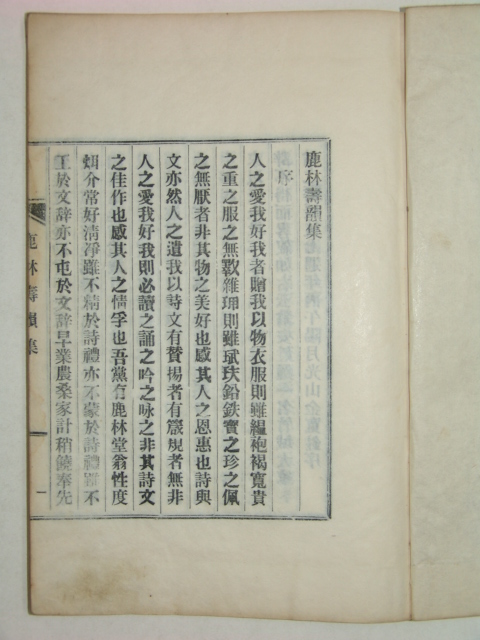 鹿林壽韻集
序
人之愛我好我者贈我以物衣服則雖縕袍褐寬貴
之重之服之無斁雜珮則雖珷玞鉛鉄寶之珍之佩
之無厭者非其物之美好也感其人之恩惠也詩與
文亦然人之遺我以詩文有贊揚者有箴規者無非
人之愛我好我則必讀之誦之吟之咏之非其詩文
之佳作也感其人之情孚也吾黨有鹿林堂翁性度
介常好淸淨雖不精於詩禮亦不蒙於詩禮雖不
工於文辞亦不屯於文辞早業農桑家計稍饒奉先
鹿林壽韻集
一